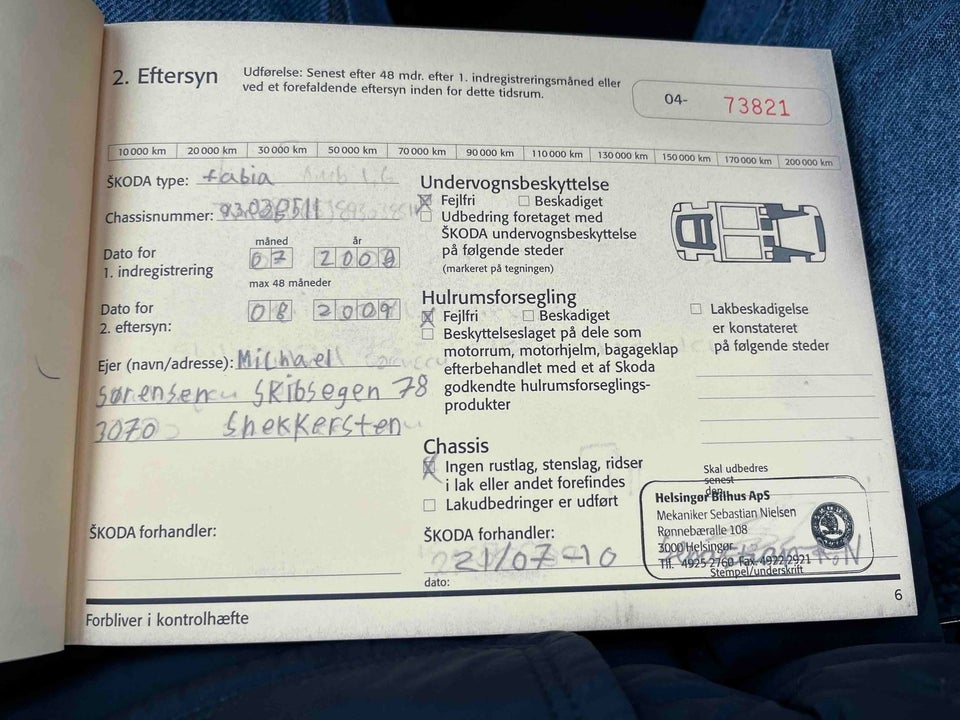 2. Eftersyn
Udførelse: Senest efter 48 mdr. efter 1. indregistreringsmåned eller
ved et forefaldende eftersyn inden for dette tidsrum.
04- 73821
10 000 km 20 000 km 30 000 km 50 000 km 70 000 km 90 000 km 110 000 km 130 000 km 150 000 km 170 000 km 200 000 km
ŠKODA type: fabia
Chassisnummer:
Dato for
1. indregistrering
måned år
07 2008
max 48 måneder
Dato for
2. eftersyn:
08 2009
Ejer (navn/adresse): Michael
Sørensen Skibsegen 78
3070 Snekkersten
ŠKODA forhandler:
Undervognsbeskyttelse
Fejlfri Beskadiget
Udbedring foretaget med
ŠKODA undervognsbeskyttelse
på følgende steder
(markeret på tegningen)
Hulrumsforsegling
Fejlfri Beskadiget
Beskyttelseslaget på dele som
motorrum, motorhjelm, bagageklap
efterbehandlet med et af Skoda
godkendte hulrumsforseglings-
produkter
Chassis
Ingen rustlag, stenslag, ridser
i lak eller andet forefindes
Lakudbedringer er udført
ŠKODA forhandler:
21/07-10
dato:
Lakbeskadigelse
er konstateret
på følgende steder
Skal udbedres
senest
den
Helsingør Bilhus ApS
Mekaniker Sebastian Nielsen
Rønnebæralle 108
3000 Helsingør
Tlf. 4925 2760 Fax. 4922 2921
Stempel/underskrift
6
Forbliver i kontrolhæfte